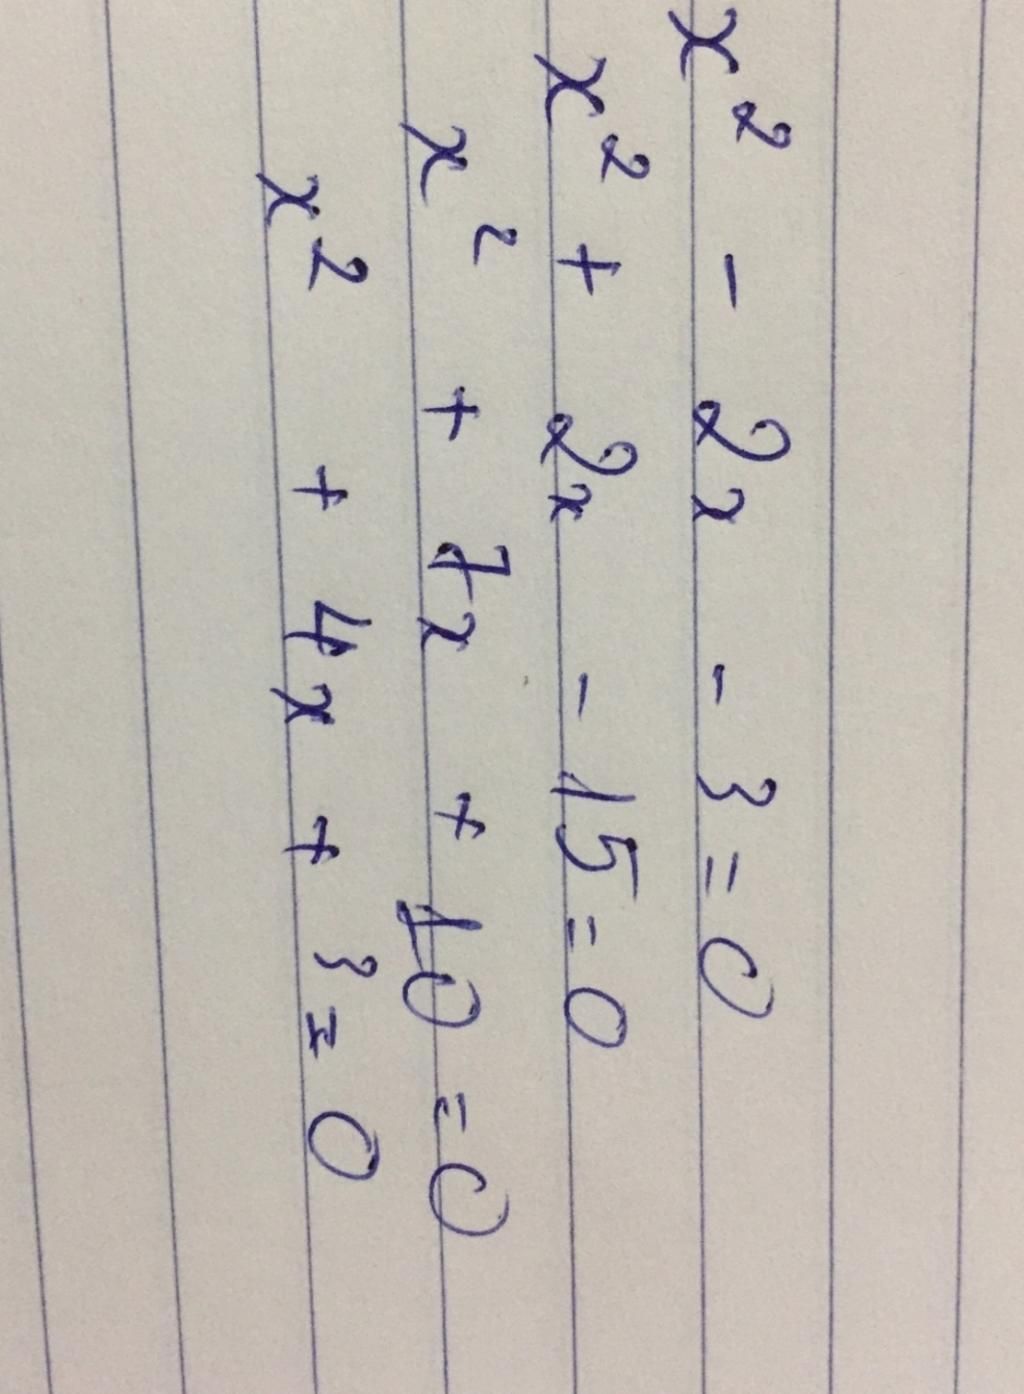 x² - 2x - 3 = 0
x² + 2x - 15 = 0
x² + 7x + 10 = 0
x² + 4x + 3 = 0